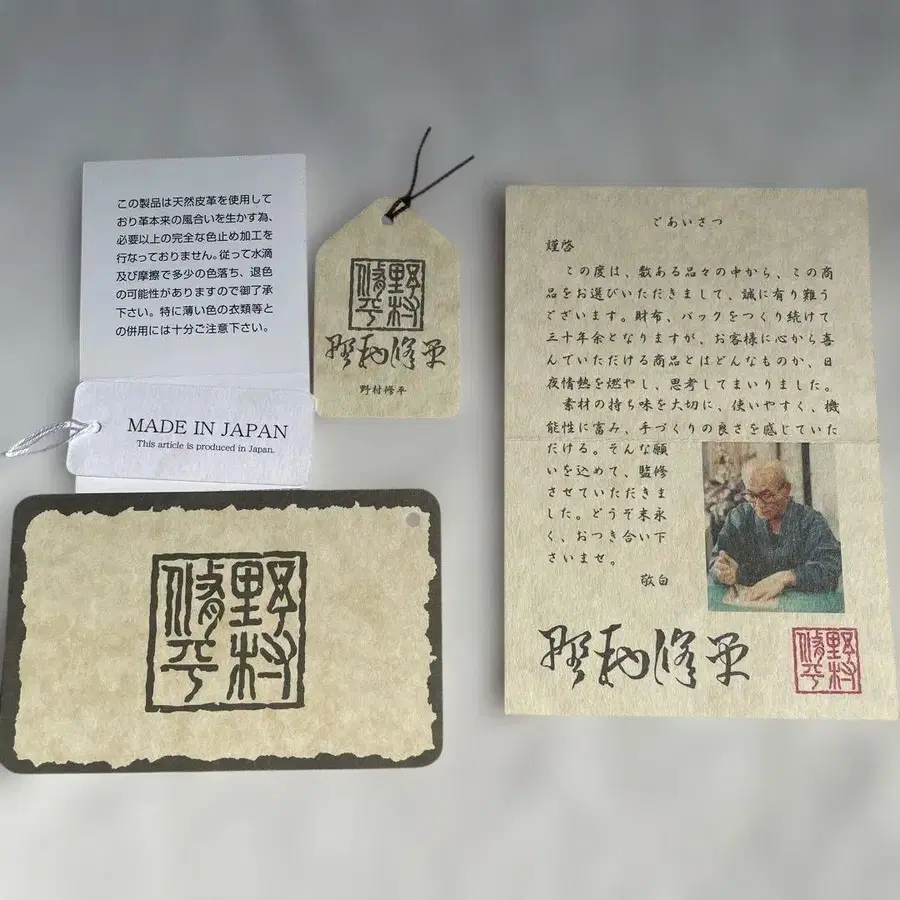 この製品は天然皮革を使用して
おり革本来の風合いを生かす為、
必要以上の完全な色止め加工を
行なっておりません。従って水滴
及び摩擦で多少の色落ち、退色
の可能性がありますので御了承
下さい。特に薄い色の衣類等と
の併用には十分ご注意下さい。
MADE IN JAPAN
This article is produced in Japan.
野村
脩平
野村脩平
野村修平
野村
脩平
ごあいさつ
謹啓
この度は、数ある品々の中から、この商
品をお選びいただきまして、誠に有り難う
ございます。財布、バックをつくり続けて
三十年余となりますが、お客様に心から喜
んでいただける商品とはどんなものか、日
夜情熱を燃やし、思考してまいりました。
素材の持ち味を大切に、使いやすく、機
能性に富み、手づくりの良さを感じていた
だける。そんな願
いを込めて、監修
させていただきま
した。どうぞ末永
く、おつき合い下
さいませ。
敬白
野村脩平
野村
脩平